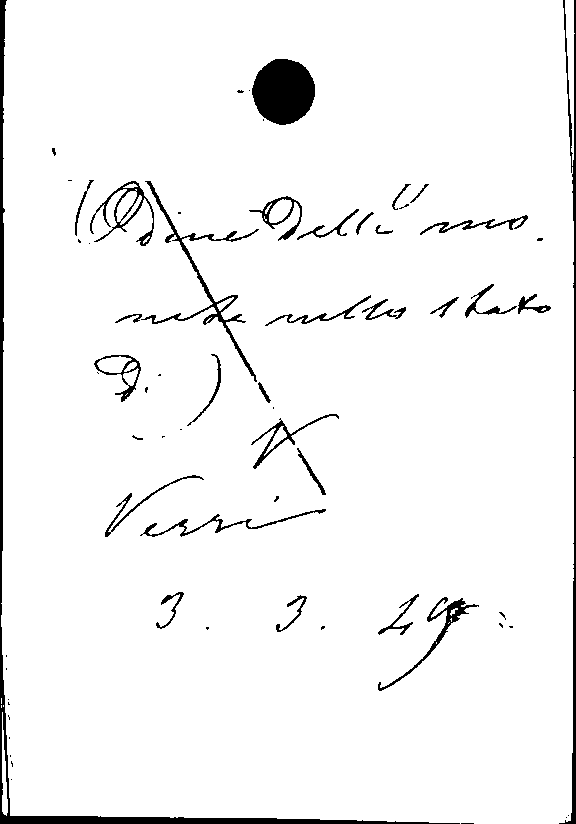 (Odine delle mo.
nete nello Stato
di.)
V
Verri
3. 3. 29